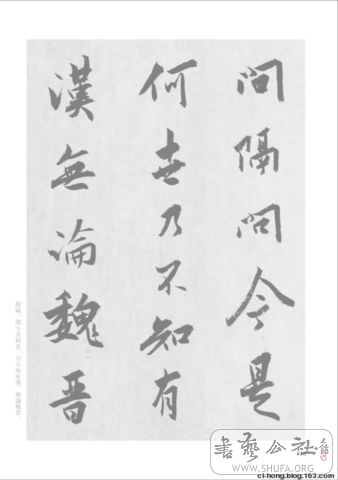 间隔问今是
何世乃不知有
漢無論魏晋
間隔。問今是何世，乃不知有漢，無論魏晋。
書藝公社
WWW.SHUFA.ORG
ci-hong.blog.163.com